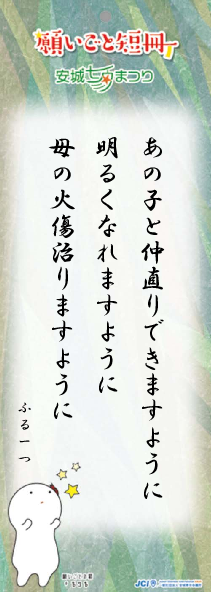 願いごと短冊
安城七夕まつり
あの子と仲直りできますように
明るくなれますように
母の火傷治りますように
ふるーつ
JCI